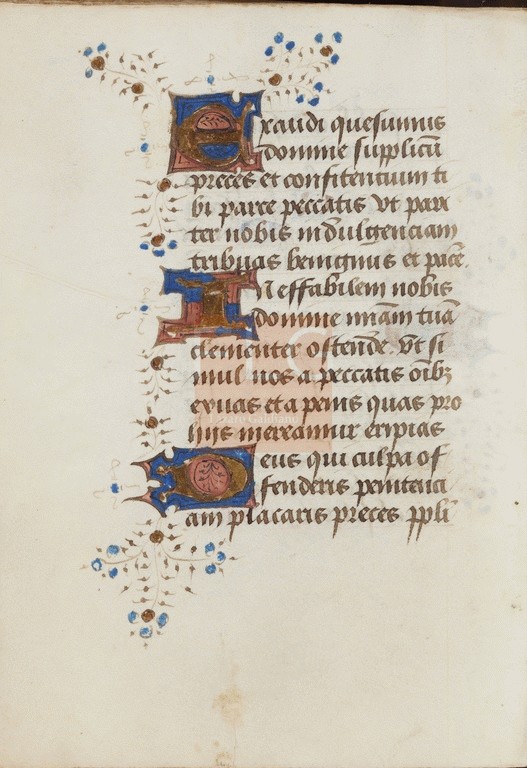 Exaudi quesumus
domine supplicū
preces et confitentium ti
bi parce peccatis vt pari
ter nobis indulgenciam
tribuas benignus et pacē
Ineffabilem nobis
domine miām tuā
clementer ostende. Vt si
mul nos a peccatis oībꝫ
exuas et a penis quas pro
hijs meremur eripias
Deus qui culpa of
fenderis penitenci
am placaris preces ppl̄i